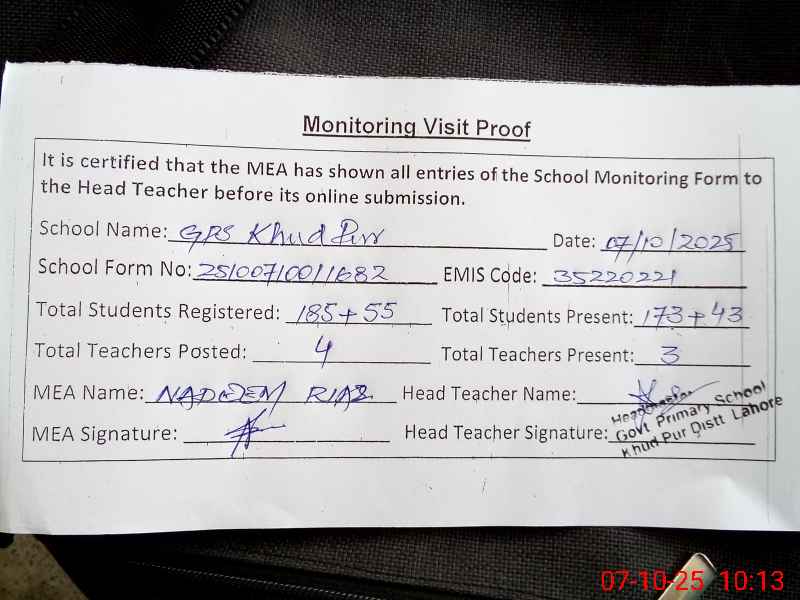 Monitoring Visit Proof
It is certified that the MEA has shown all entries of the School Monitoring Form to
the Head Teacher before its online submission.
School Name: GPS Khud Pur Date: 07/10/2025
School Form No: 25100710011682 EMIS Code: 35220221
Total Students Registered: 185+55 Total Students Present: 173+43
Total Teachers Posted: 4 Total Teachers Present: 3
MEA Name: NADEEM RIAZ Head Teacher Name:
MEA Signature: Head Teacher Signature:
Headmaster
Govt Primary School
Khud Pur Distt Lahore
07-10-25 10:13